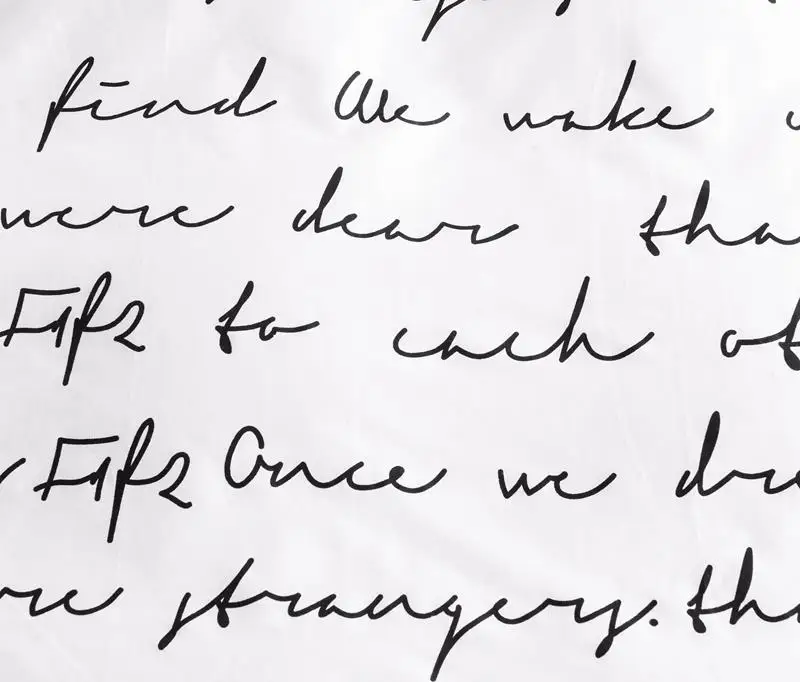 find We wake
were dear tha
to each ot
Once we dre
re strangers. tha